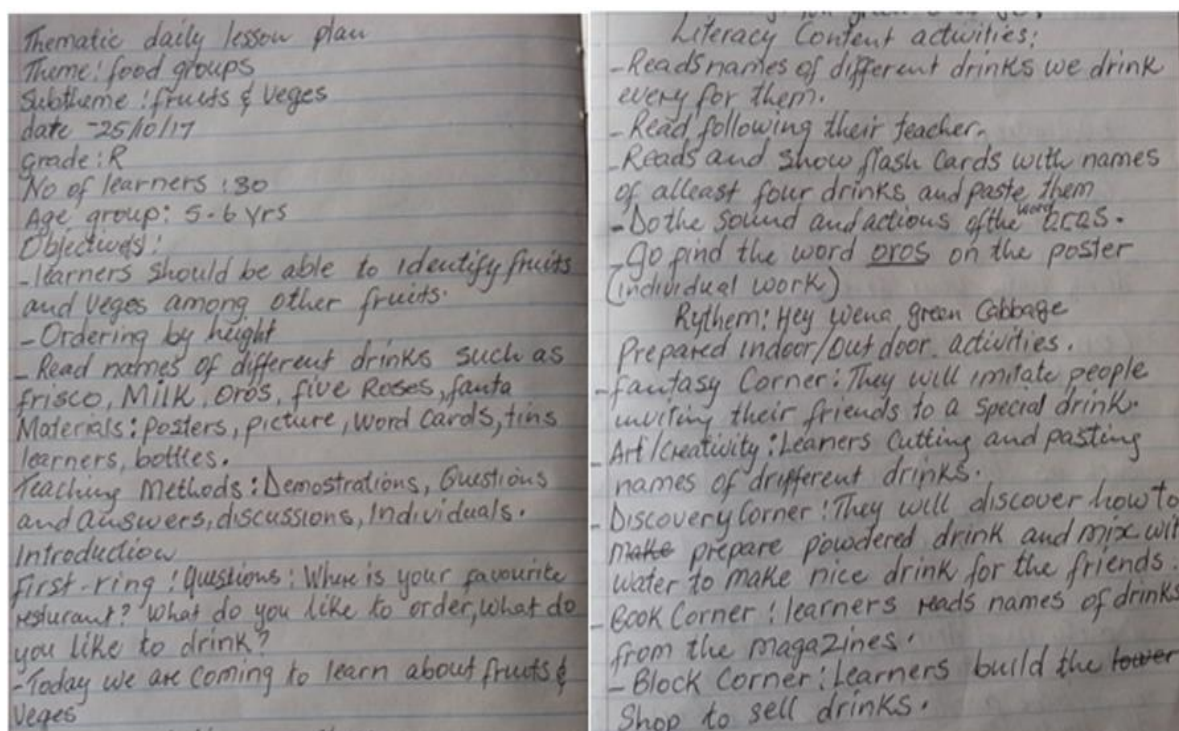 Thematic daily lesson plan
Theme: food groups
Subtheme: fruits & veges
date -25/10/17
grade: R
No of learners: 30
Age group: 5-6 yrs
Objectives:
-learners should be able to identify fruits
and veges among other fruits.
- Ordering by height
- Read names of different drinks such as
frisco, Milk, Oros, five Roses, fanta
Materials: posters, picture, word cards, tins
learners, bottles.
Teaching Methods: Demostrations, Questions
and answers, discussions, individuals.
Introduction
First-ring: Questions: Where is your favourite
resturant? What do you like to order, what do
you like to drink?
-Today we are coming to learn about fruits &
veges
Literacy Content activities:
-Reads names of different drinks we drink
every for them.
-Read following their teacher.
-Reads and show flash cards with names
of alleast four drinks and paste them
-Do the sound and actions of the word
-Go find the word oros on the poster
(individual work)
Rythem: Hey wena green Cabbage
Prepared indoor/out door activities.
-fantasy Corner: They will imitate people
inviting their friends to a special drink.
- Art/Creativity: Learners cutting and pasting
names of drifferent drinks.
- Discovery Corner: They will discover how to
make prepare powdered drink and mix wit
water to make nice drink for the friends.
-Book Corner: learners reads names of drinks
from the magazines.
- Block Corner: Learners build the tower
Shop to sell drinks.